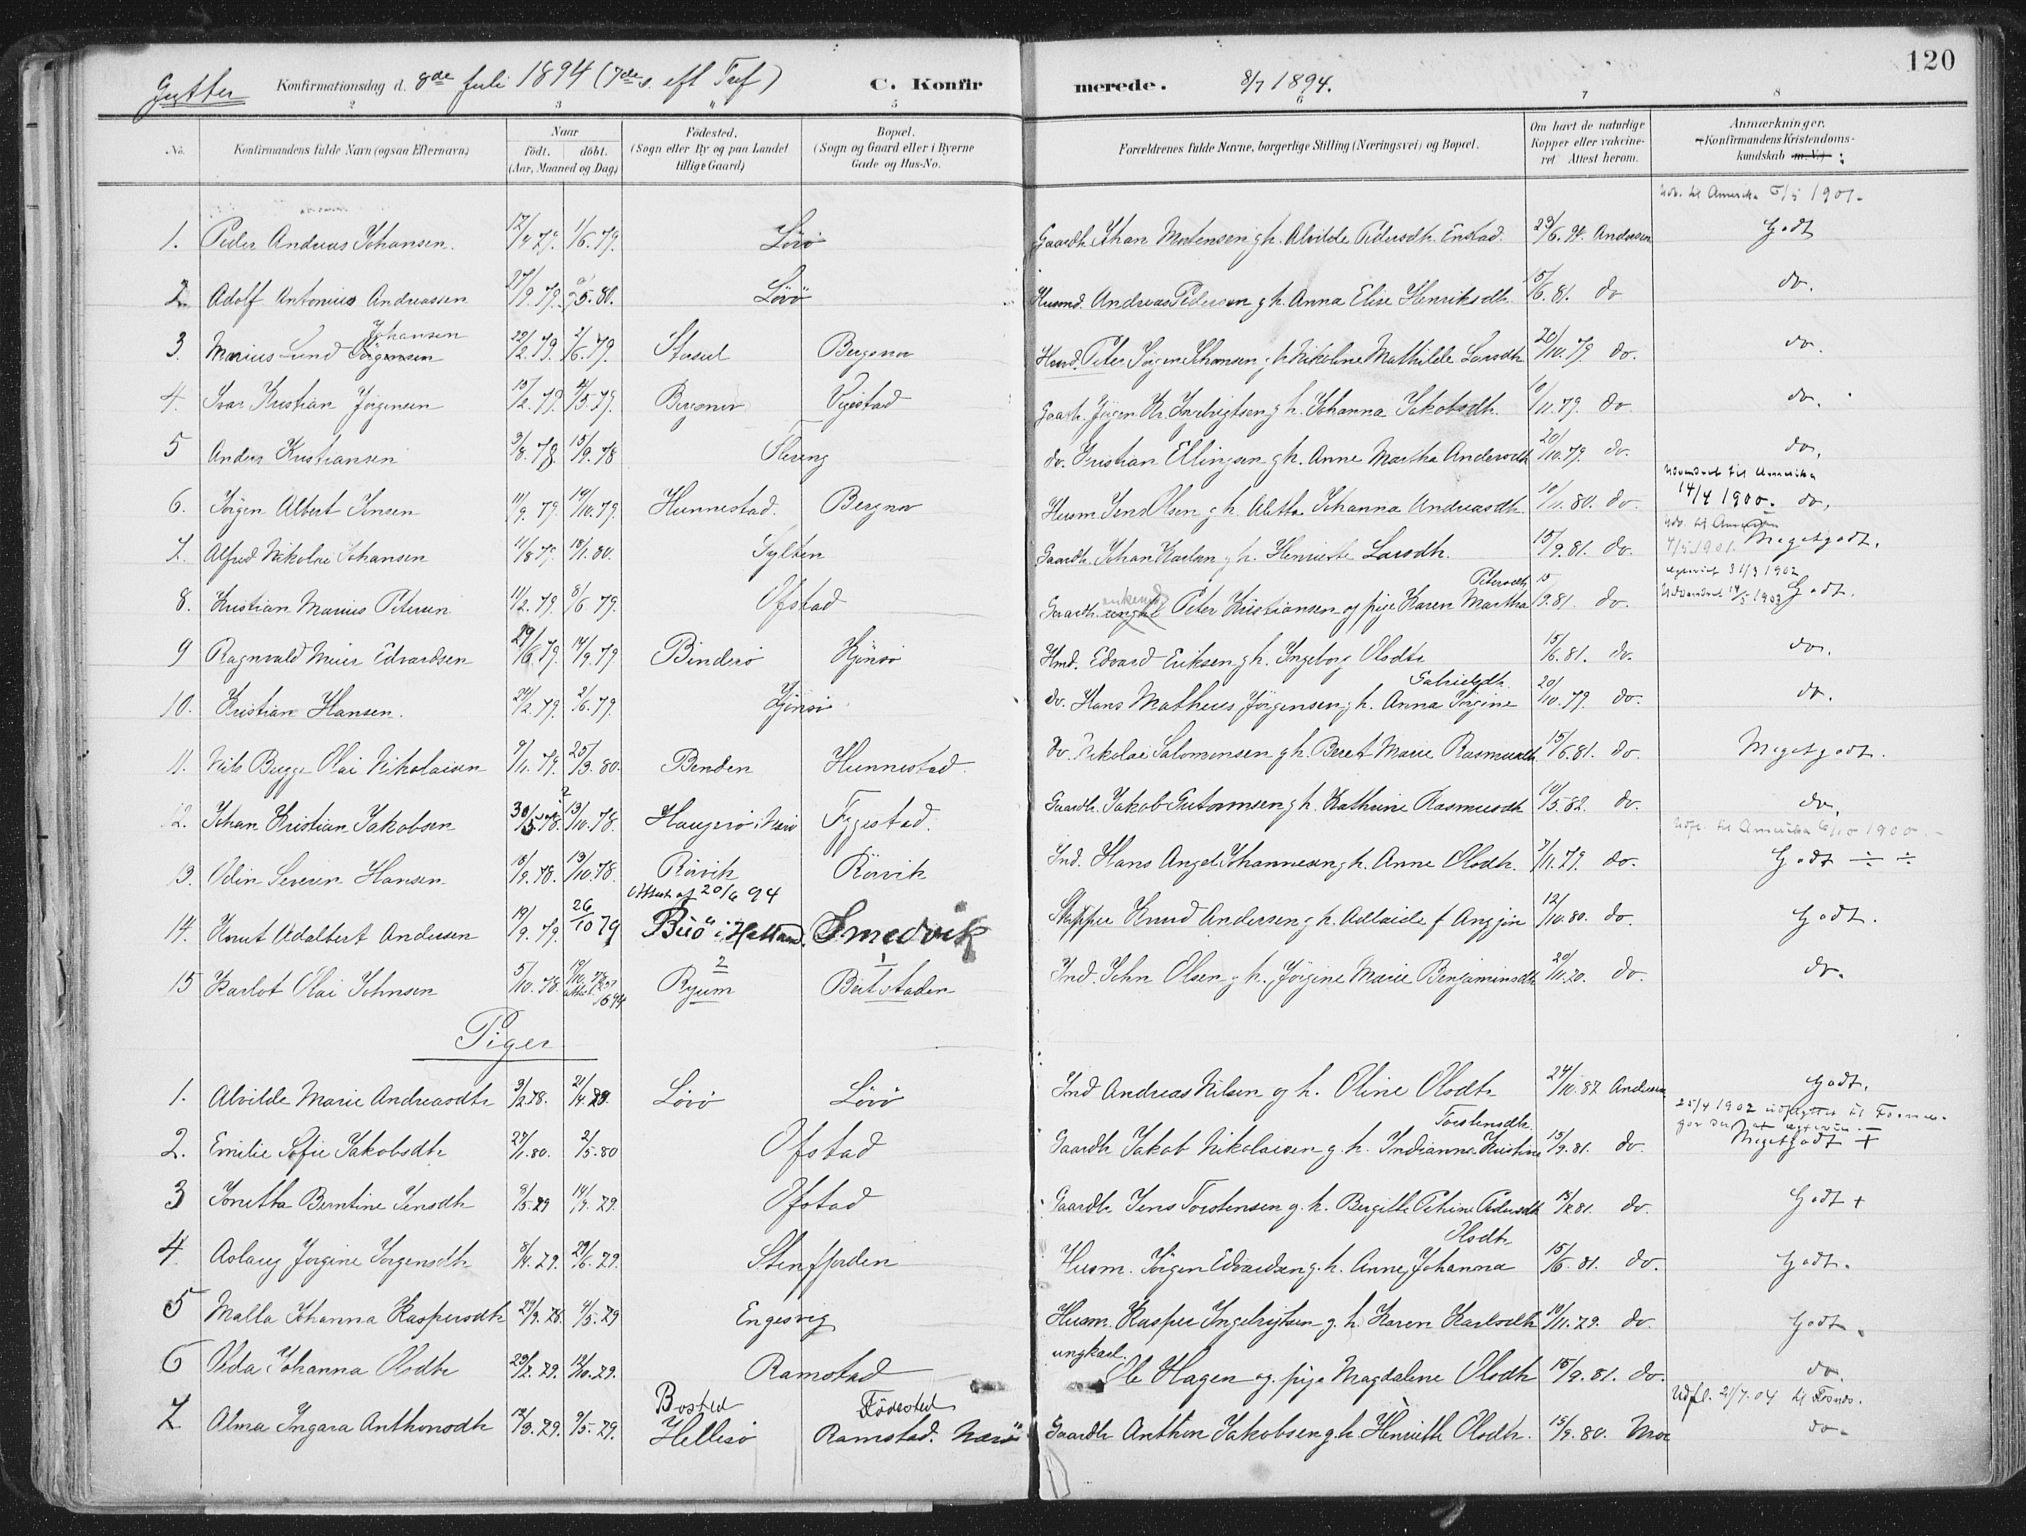 120
Gutter Konfirmationsdag d. 8de Juli 1894 (7de s. eft Tref) C. Konfirmerede. 8/7 1894.
2 3 4 5 6 7 8
No. Konfirmandens fulde Navn (ogsaa Efternavn) Naar født. døbt. (Aar, Maaned og Dag) Fødested. (Sogn eller By og paa Landet tillige Gaard) Bopæl. (Sogn og Gaard eller i Byerne Gade og Hus-No. Forældrenes fulde Navne, borgerlige Stilling (Næringsvei) og Bopæl. Om havt de naturlige Kopper eller vakcineret Attest herom. Anmærkninger. Konfirmandens Kristendomskundskab m. V.) :
Udv. til Amerika 5/5 1901.
1. Peder Andreas Johansen. 17/4 79. 1/6. 79. Lövö Gaardb. Johan Mortensen g h. Alvilde Pedersdh. Enstad. 23/6. 94. Andersen Godt
2 Adolf Antonius Andreassen 27/9. 79. 9/5. 80. Lövö Husmd. Andreas Pedersen g h. Anna Elise Henriksdh. 15/6. 81. do do.
Johansen
3. Marius Lund Jörgensen 22/2. 79. 2/6. 79. Stasul Bergsnov Husmd. Peter Jörgen Johansen g h Nikoline Mathilde Larsdh. 20/10. 79 do. do.
4. Ivar Kristian Jörgensen 13/2. 79. 21/5. 79. Bergsnov Vigestad Gaardb. Jörgen Kr. Ingebrigtsen g h. Johanna Jakobsdh. 10/11. 79. do. do.
5 Anders Kristiansen 3/8. 78. 15/9. 78 Flereng do. Kristian Ellingsen g h. Anne Martha Andersdh 20/10. 79. do. do.
Udvandret til Amerika
6. Jörgen Albert Jensen 11/9. 79. 19/10. 79. Hunnestad. Bergsnov Husm. Jens Olsen g h. Aletta Johanna Andreasdh. 10/11. 80. do. 14/4 1900. do.
Udv. til Amerika
7. Alfred Nikolai Johansen 11/8 79. 18/1. 80. Sylten Gaardb. Johan Karlsen g h. Henriette Larsdh. 15/9. 81. do. 4/5 1901. Megetgodt.
Petersdh
8. Kristian Marius Petersen 11/2. 79. 8/6. 79. Ofstad Gaardb. Peter Kristiansen og pige Karen Martha 15/9. 81. do. Udvandret 14/5 1903 Godt.
9 Ragnvald Meier Edvardsen 29/6. 79. 14/9. 79 Binderö Kjönsö Hmd. Edvard Eriksen g h. Ingeborg Olsdtr 15/6. 81. do. do.
Gabrielsdh.
10. Kristian Hansen. 24/2. 79. 2/6. 79. Kjönsö do. Hans Mathias Jörgensen g h. Anna Jörgine 20/10. 79. do. do.
11. Nils Bugge Olai Nikolaisen 9/11. 79. 25/3. 80. Benden Hunnestad. do. Nikolai Salomonsen g h. Beret Marie Rasmusdh 15/6. 81. do. Megetgodt.
12. Johan Kristian Jakobsen 30/5. 78. 13/10. 78. Haugerö i Nærö Fygestad. Gaardb. Jakob Gutormsen g h. Kathrine Rasmusdh 10/5. 82. do. do.
Udfl. til Amerika 6/10 1900.
13. Odin Severin Hansen 18/9. 78. 13/10. 78. Rörvik Rörvik Ind. Hans Angel Johannesen g h. Anne Olsdh. 7/11. 79. do. Godt ÷ ÷
Attest af 20/6 94
14. Knut Adalbert Andersen 19/9. 79. 26/10 79 Buö i Hetland. Smedvik Skipper Knud Andersen g h. Adlaide f Angjin 12/10. 80. do. Godt.
15 Karlot Olai Johnsen 5/10. 78. Ryum Botstaden Ind. John Olsen g h. Jörgine Marie Benjaminsdh 20/11. 70. do. do.
Piger
1. Alvilde Marie Andreasdtr 3/2. 78. 21/4. 78. Lövö Lövö Ind Andreas Nilsen og h. Oline Olsdtr 24/10. 82 Andersen Godt.
25/4 1902 udflyttet til Fosnes.
Torstensdh.
2. Emilie Sofie Jakobsdtr 27/1. 80. 2/5. 80 Ofstad Gaardb. Jakob Nikolaisen g. h. Indianna Kristine 15/9. 81. do. Megetgodt +
3 Jonetta Berntine Jensdtr 8/5. 79 14/9. 79. Ofstad Gaardb. Jens Torstensen g. h. Bergitte Petrine Pedersdh 15/9. 81. do. Godt +
Olsdtr
4. Aslaug Jörgine Jörgensdtr 8/4. 79. 29/6. 79. Stenfjorden Husm. Jörgen Edvardsen g. h. Anne Johanna 15/6. 81. do. Godt.
5 Malla Johanna Kaspersdtr 29/9. 78. 4/5. 79 Engesvig Husm. Kasper Ingebrigtsen g. h. Karen Karlsdtr 10/11. 79. do. Godt.
ungkarl
6 Vida Johanna Olsdtr 23/2. 79. 12/10. 79. Ramstad Ole Hagen og pige Magdaline Olsdtr 15/9. 81. do. do.
Bosted Födested Udfl. 21/7. 04 til Fosnes.
7 Alma Ingara Anthonsdtr 12/3. 79. 9/5. 79. Hellesö Ramstad. Nærö Gaardb. Anthon Jakobsen g. h. Henriette Olsdtr. 15/9. 80. Moe do.